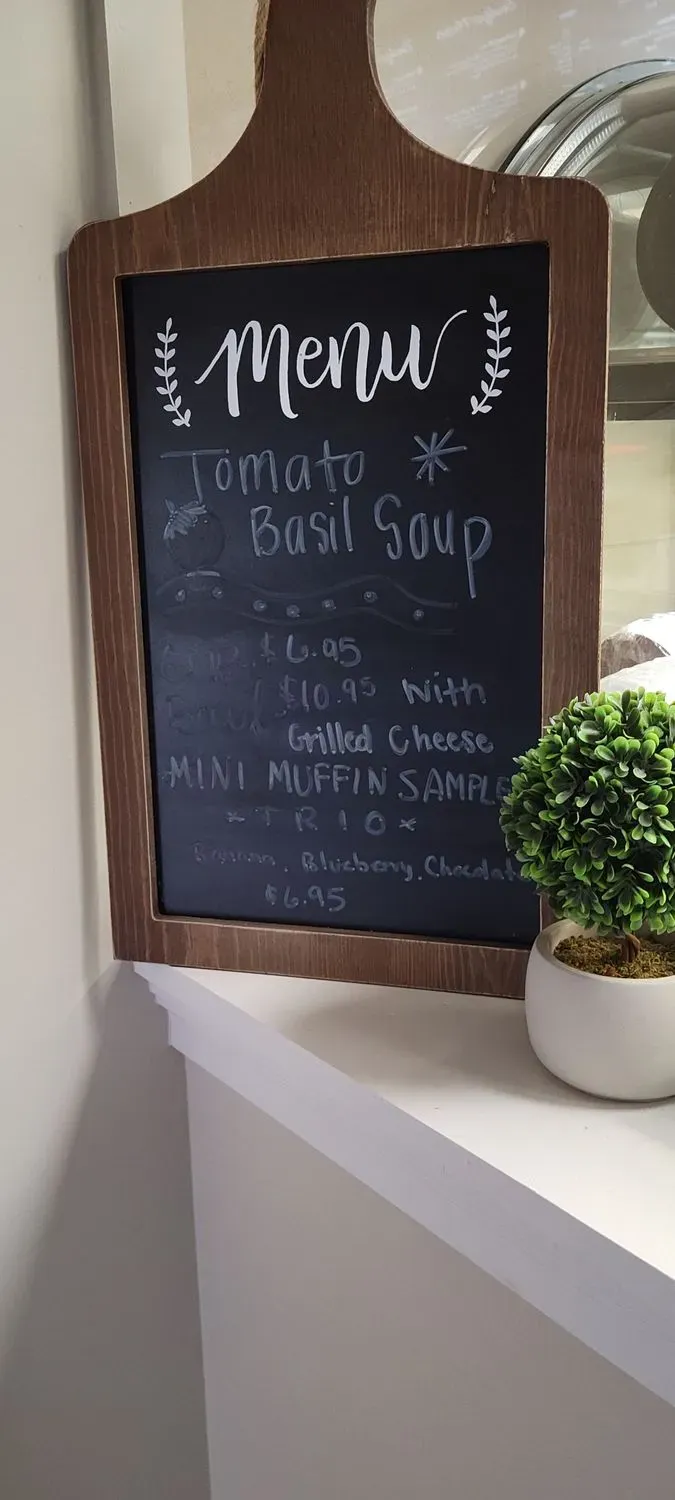 Menu
Tomato
Basil Soup
$6.95
$10.95 with
Grilled Cheese
MINI MUFFIN SAMPLE
*TRIO*
Banana, Blueberry, Chocolat
$6.95